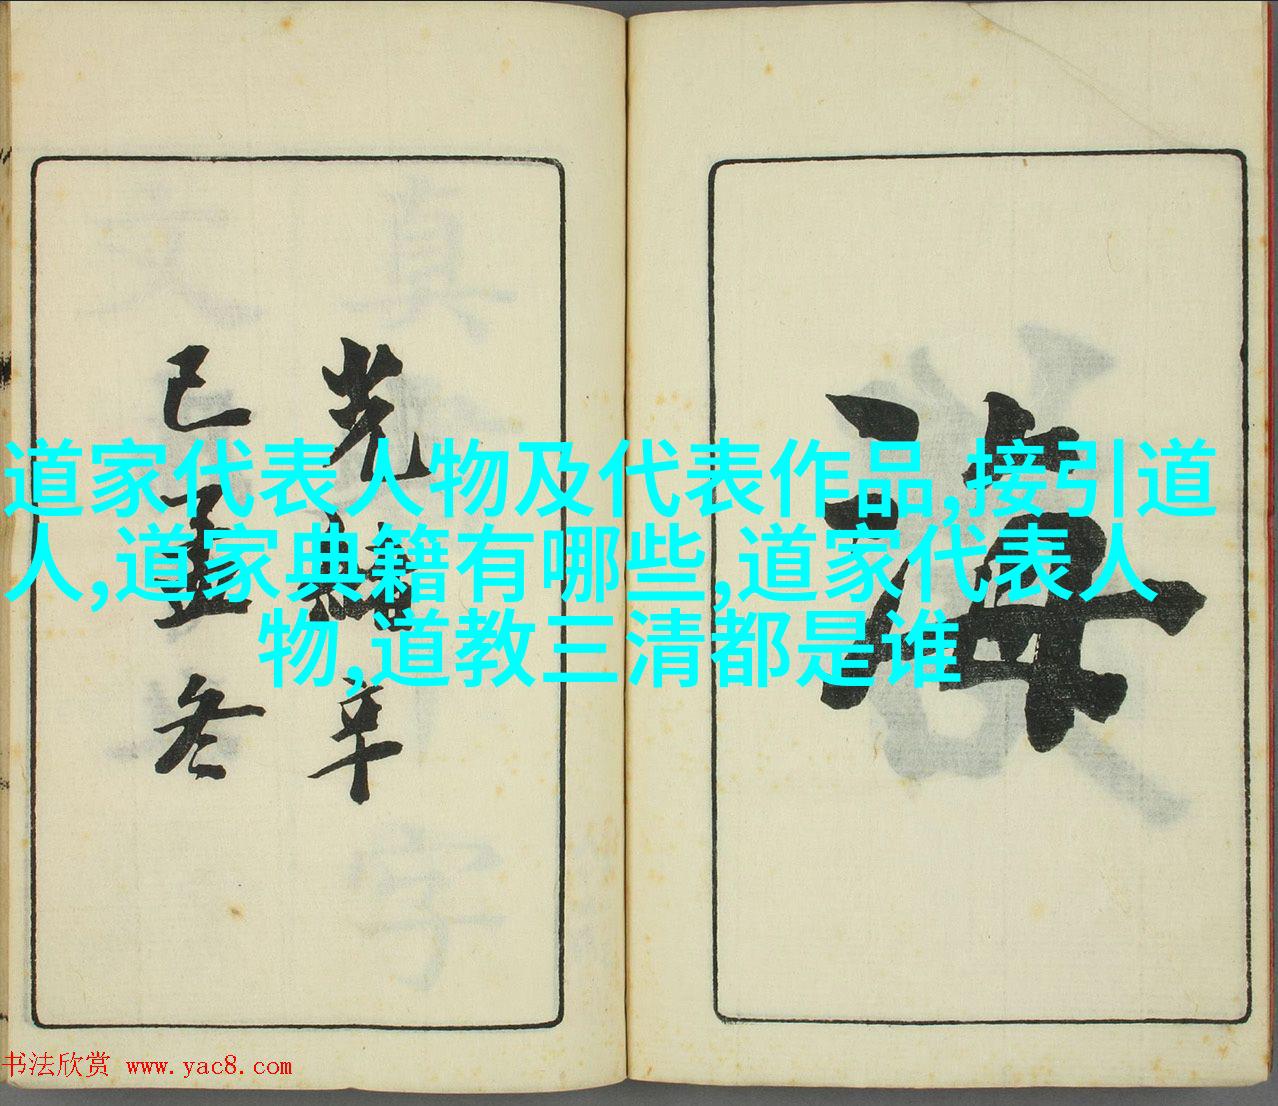 海
光緒辛
巳孟冬
道家代表人物及代表作品,接引道
人,道家典籍有哪些,道家代表人
物,道教三清都是谁
书法欣赏 www.yac8.com